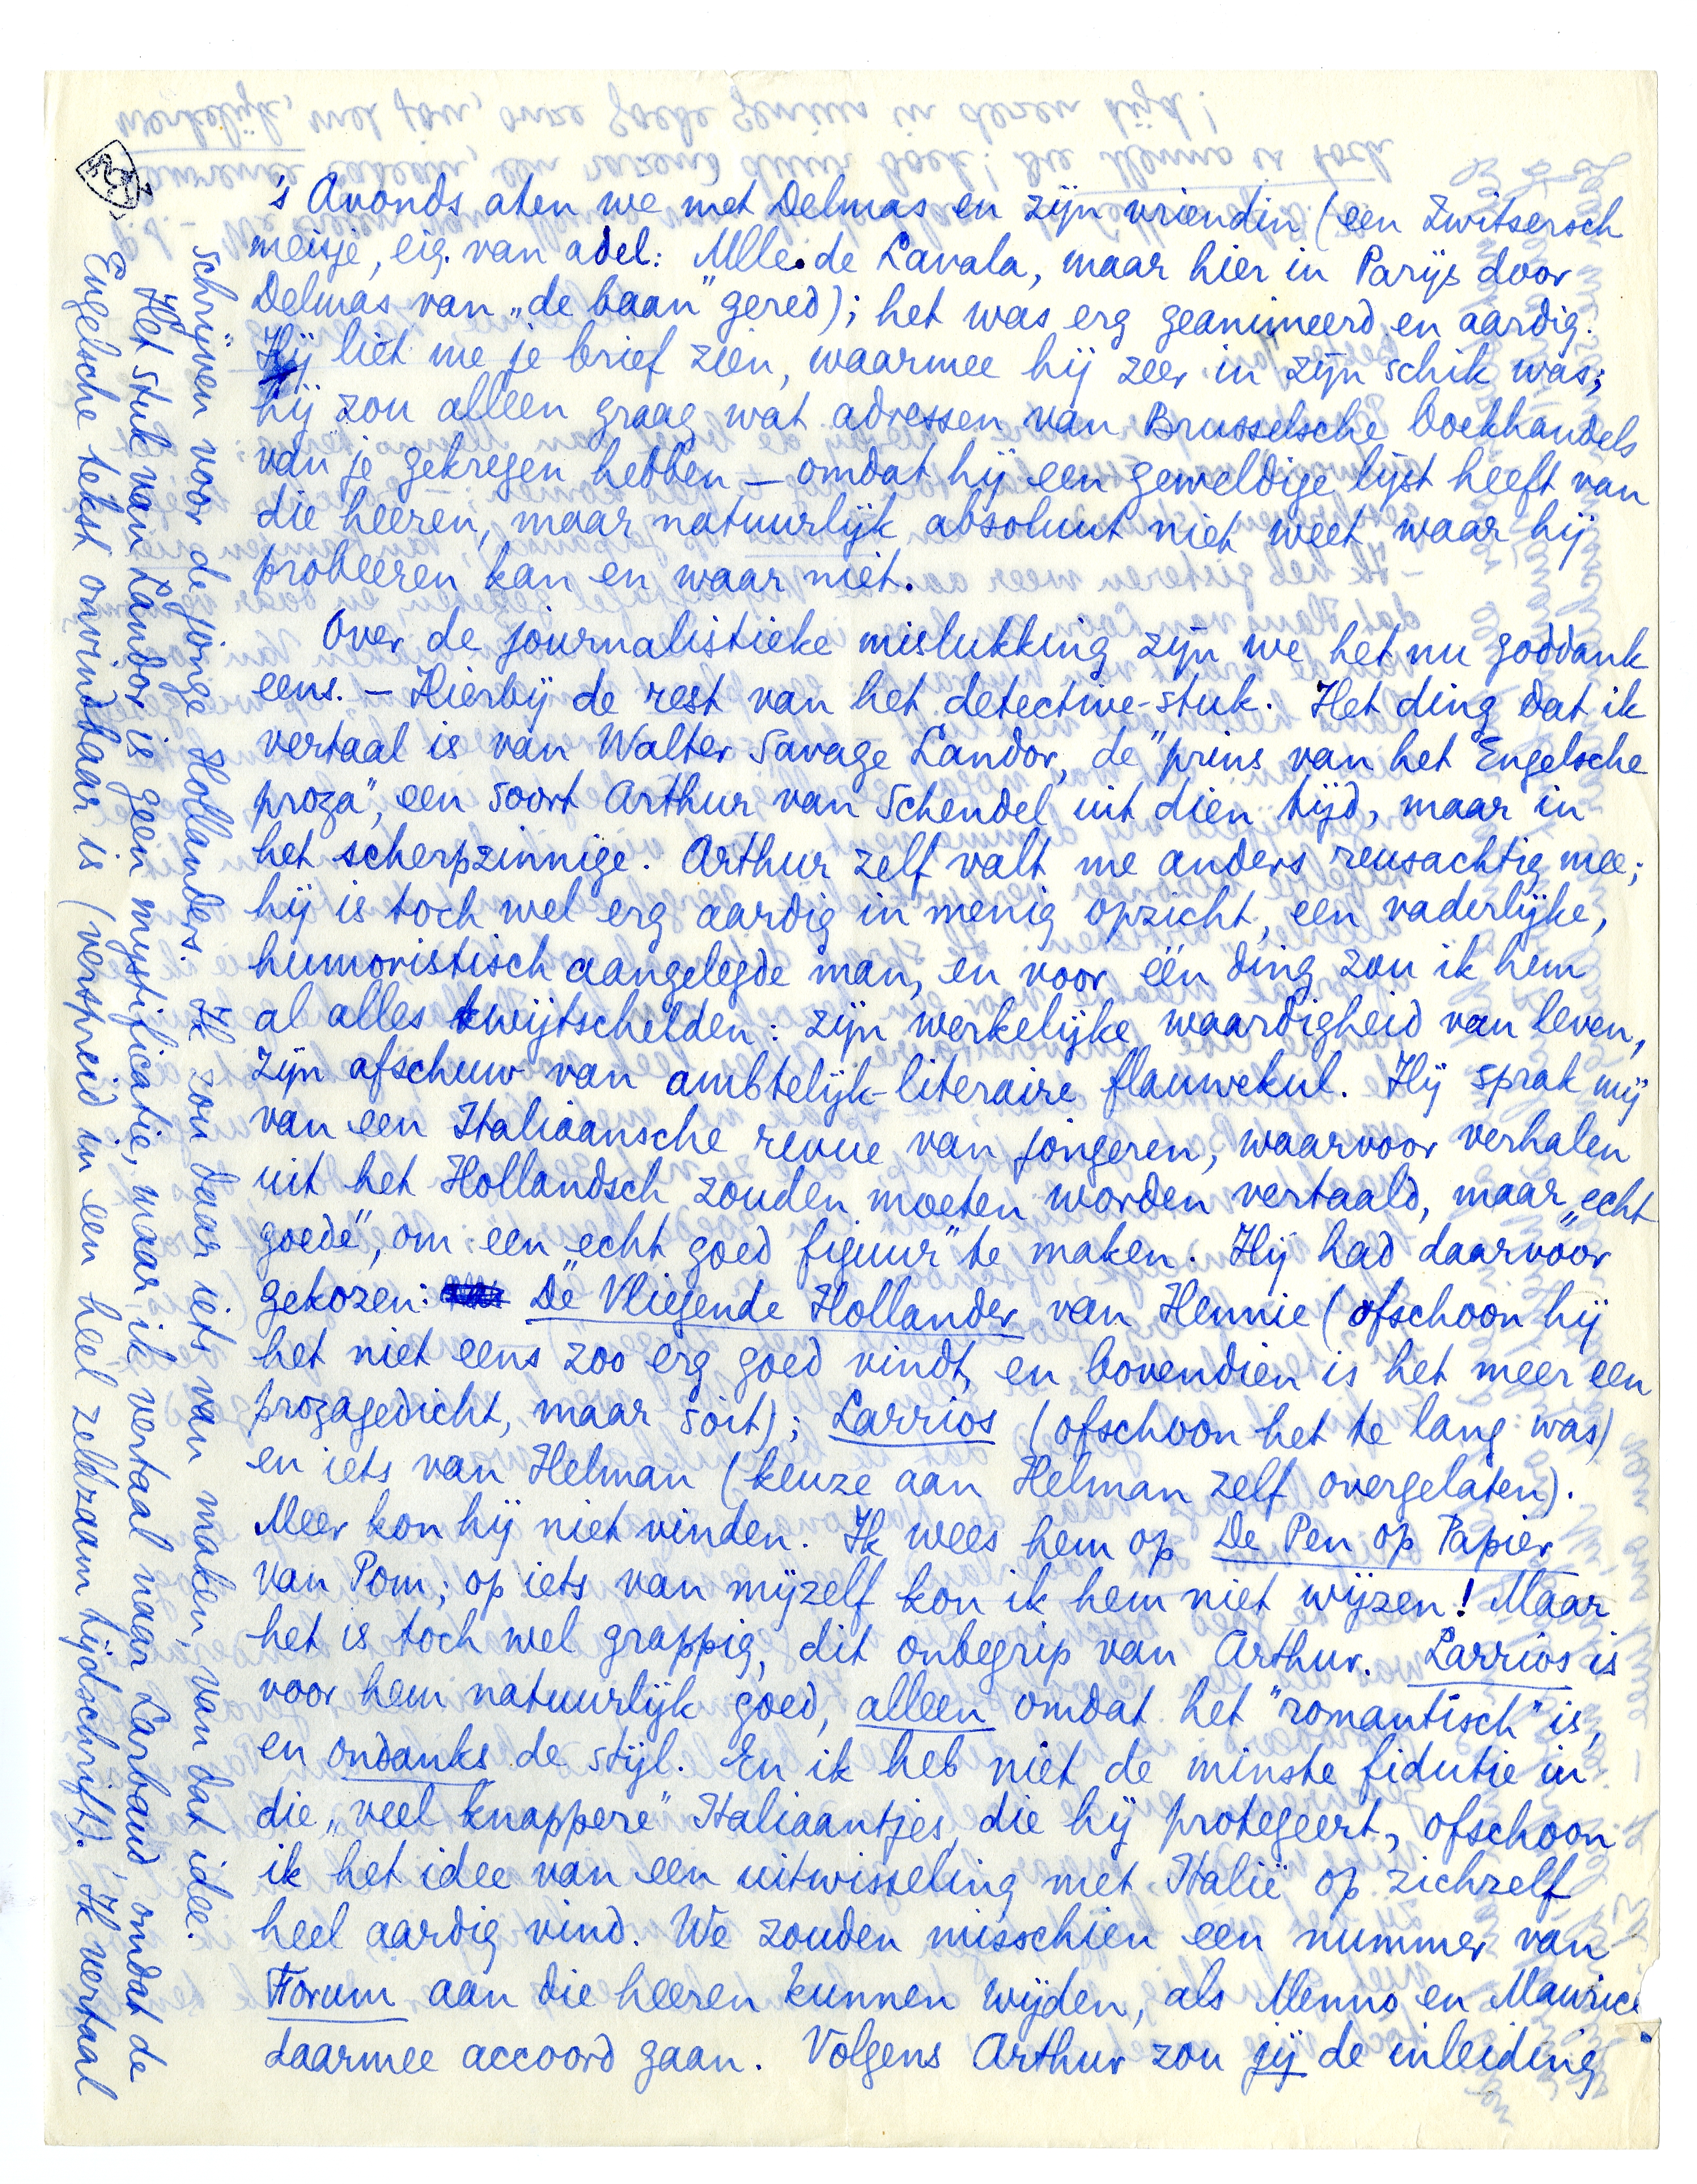 's Avonds aten we met Delmas en zijn vriendin (een Zwitsersch
meisje, eig. van adel: Mlle de Lavala, maar hier in Parijs door
Delmas van „de baan" gered); het was erg geanimeerd en aardig.
Hij liet me je brief zien, waarmee hij zeer in zijn schik was;
hij zou alleen graag wat adressen van Brusselsche boekhandels
van je gekregen hebben — omdat hij een geweldige lijst heeft van
die heeren, maar natuurlijk absoluut niet weet waar hij
probeeren kan en waar niet.
Over de journalistieke mislukking zijn we het nu goddank
eens. — Hierbij de rest van het detective-stuk. Het ding dat ik
vertaal is van Walter Savage Landor, de "prins van het Engelsche
proza", een soort Arthur van Schendel uit dien tijd, maar in
het scherpzinnige. Arthur zelf valt me anders reusachtig mee;
hij is toch wel erg aardig in menig opzicht, een vaderlijke,
humoristisch aangelegde man, en voor één ding zou ik hem
al alles kwijtschelden: zijn werkelijke waardigheid van leven,
zijn afschuw van ambtelijk-literaire flauwekul. Hij sprak mij
van een Italiaansche revue van jongeren, waarvoor verhalen
uit het Hollandsch zouden moeten worden vertaald, maar „echt
goede", om „een echt goed figuur" te maken. Hij had daarvoor
gekozen: De Vliegende Hollander van Hennie (ofschoon hij
het niet eens zoo erg goed vindt, en bovendien is het meer een
prozagedicht, maar soit); Larrios (ofschoon het te lang was)
en iets van Helman (keuze aan Helman zelf overgelaten).
Meer kon hij niet vinden. Ik wees hem op De Pen op Papier
van Pom; op iets van mijzelf kon ik hem niet wijzen! Maar
het is toch wel grappig, dit onbegrip van Arthur. Larrios is
voor hem natuurlijk goed, alleen omdat het "romantisch" is,
en ondanks de stijl. En ik heb niet de minste fidutie in
die „veel knappere" Italiaantjes, die hij protegeert, ofschoon
ik het idee van een uitwisseling met Italië op zichzelf
heel aardig vind. We zouden misschien een nummer van
Forum aan die heeren kunnen wijden, als Menno en Maurice
daarmee accoord gaan. Volgens Arthur zou jij de inleiding
schrijven voor de jonge Hollanders. Ik zou daar iets van maken, van dat idee.
Het stuk van Landor is geen mystificatie, maar ik vertaal naar Larbaud, omdat de
Engelsche tekst onvindbaar is (verspreid in een heel zeldzaam tijdschrift). Ik vertaal